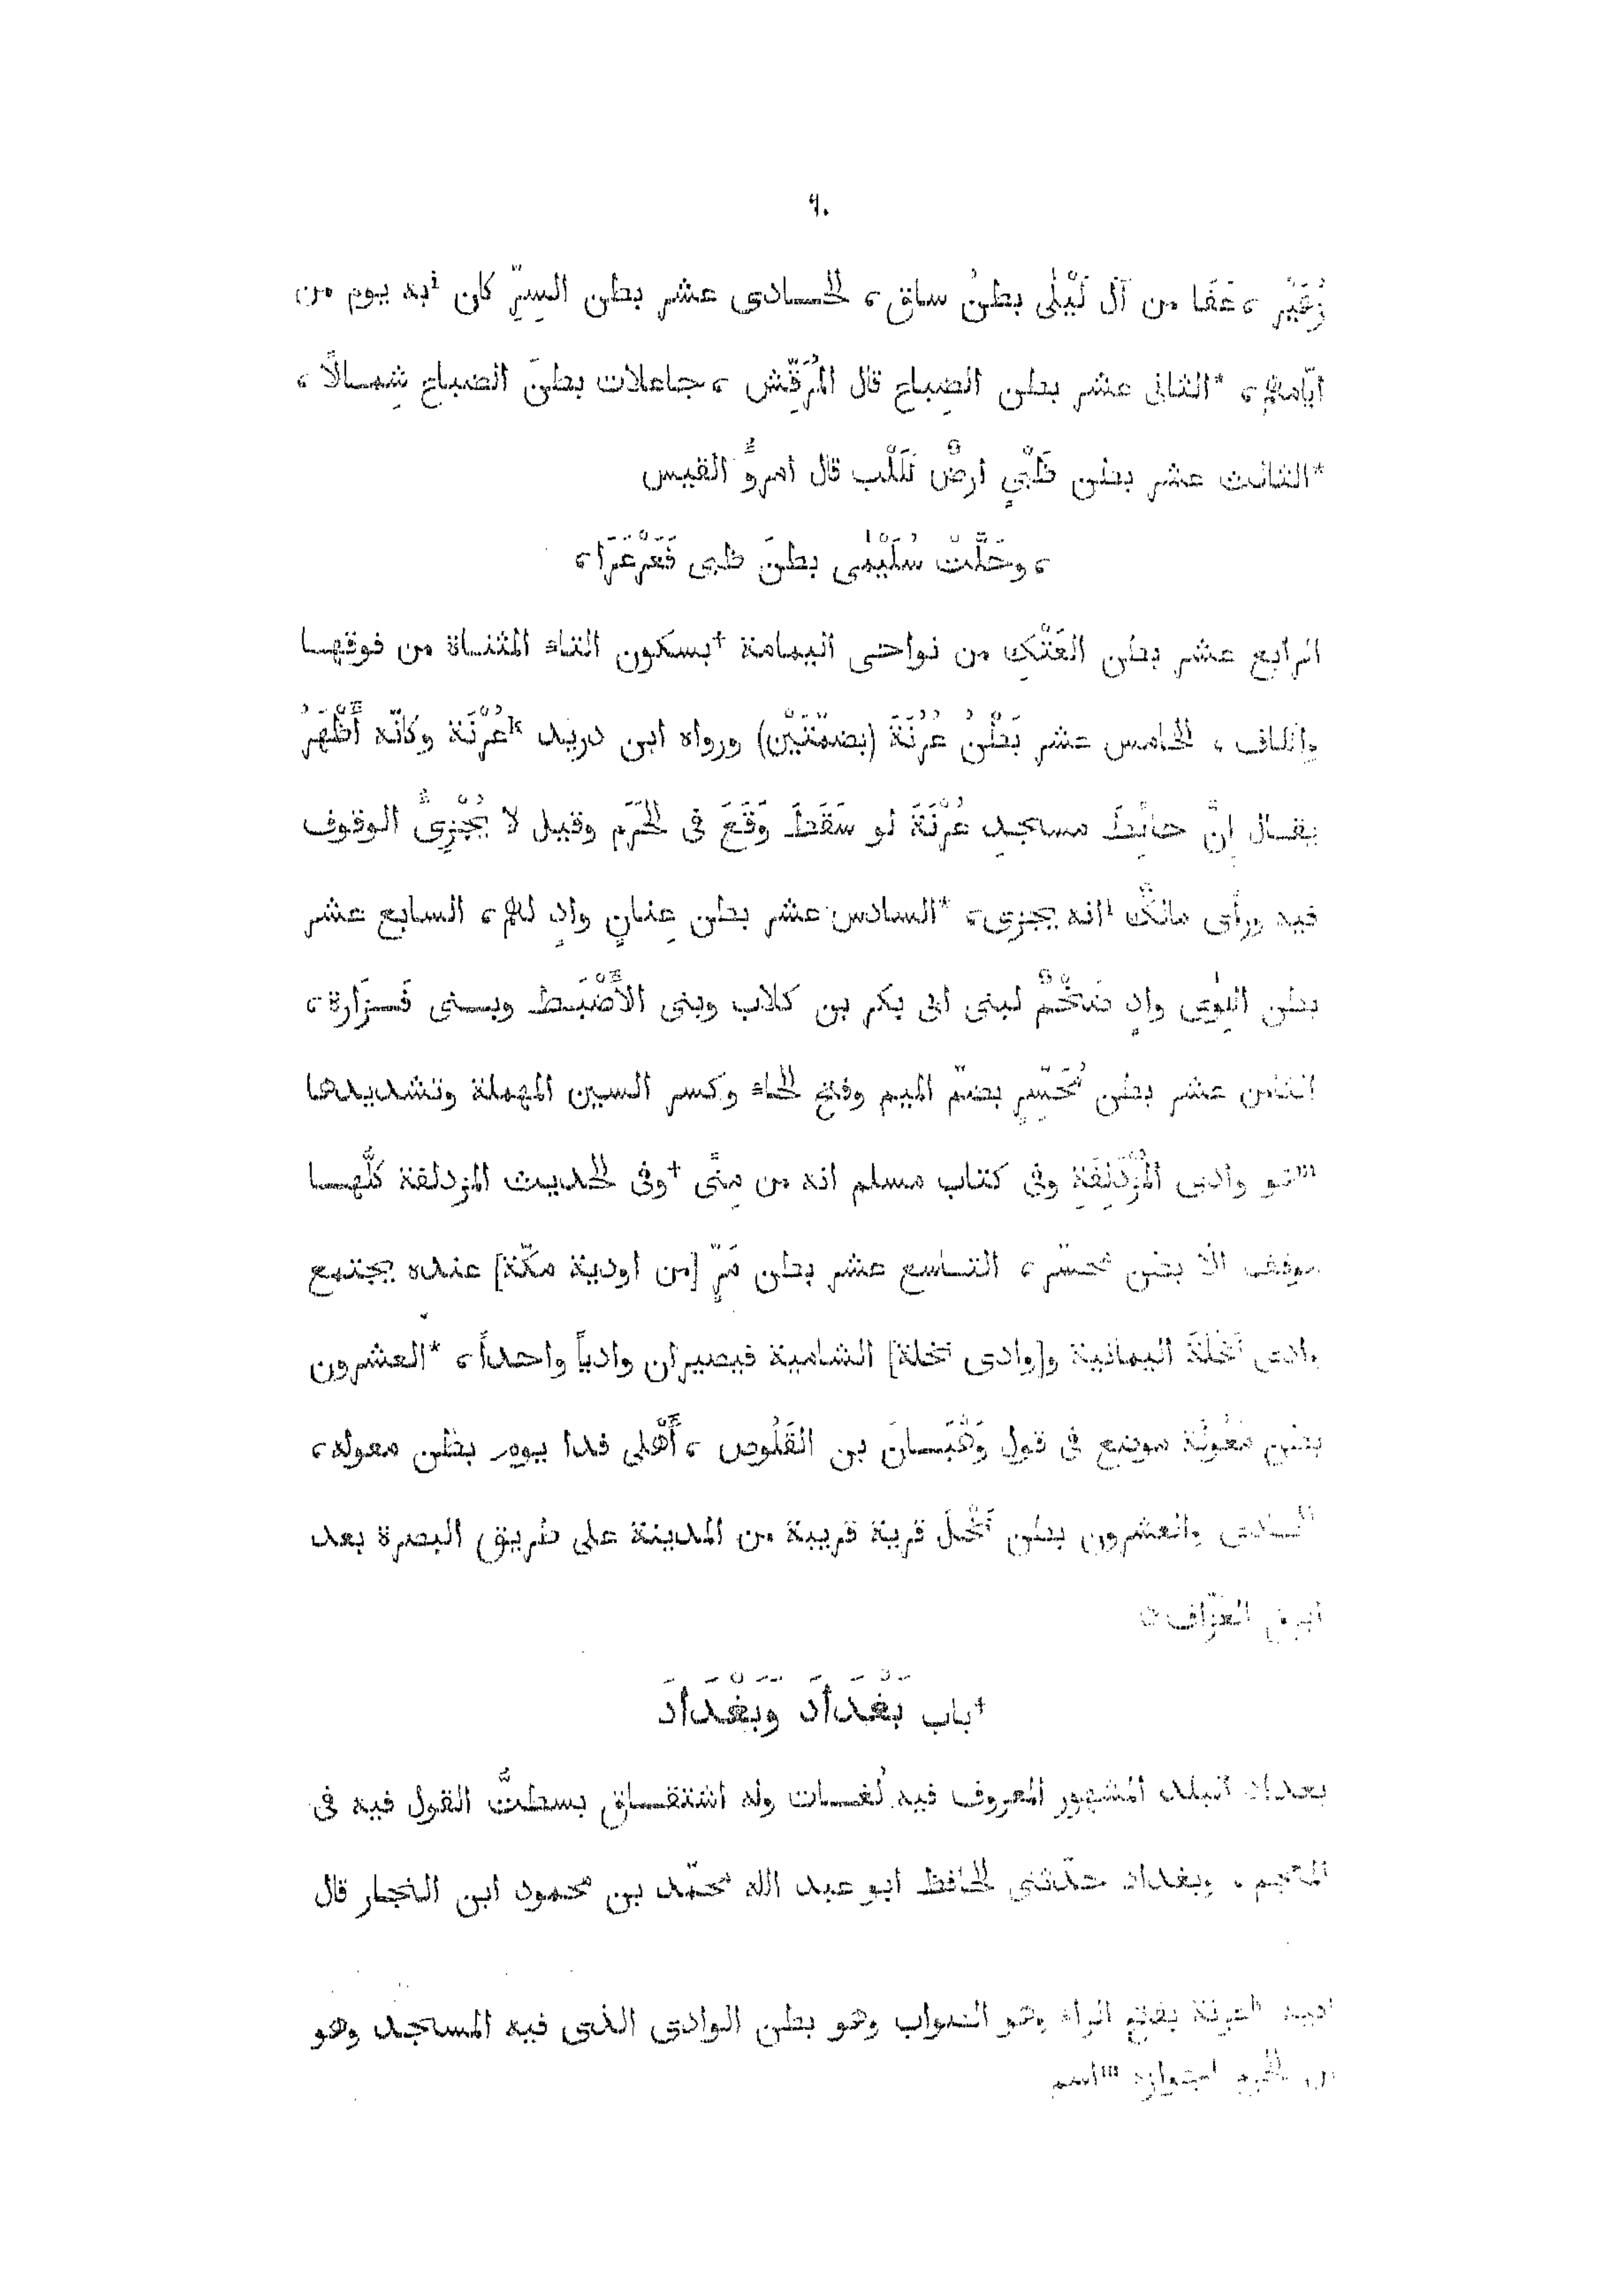 ٦٠
زُهَيْر ، عَفَا من آل لَيْلَى بطنُ ساق ، الحـادى عشر بطن السِرِّ كان به يوم من
ايّامهم ، *الثانى عشر بطن الضِباع قال المُرَقِّش ، جاعلات بطنَ الضباع شِمـالًا ،
*الثالث عشر بطن ظَبْيٍ ارضٌ لكَلْب قال امروُّ القيس
، وحَلَّتْ سُلَيْمَى بطنَ ظبى فَعَرْعَرَا ،
الرابع عشر بطن العَتْك من نواحى اليمامة †بسكون التاء المثنـاة من فوقهـا
والكاف ، الخامس عشر بَطْنُ عُرُنَةَ (بضمّتَيْن) ورواه ابن دريد عُرْنَة وكانّه أَظْهَرُ
يقـال إنّ حائِطَ مسجدِ عُرْنَةَ لو سَقَطَ وَقَعَ فى الحَرَم وقيل لا يُجْزِىُّ الوقوف
فيه ورأى مالكٌ انه يجزى ، *السادس عشر بطن عِنانٍ وادٍ لهم ، السابع عشر
بطن اللِوَى وادٍ ضَخْمٌ لبنى ابى بكر بن كلاب وبنى الأَضْبَـط وبـنى فَـزَارة ،
الثامن عشر بطن مُحَسِّرٍ بضمّ الميم وفتح الحاء وكسر السين المهملة وتشديدها
هو وادى المُزْدَلِفَةِ وفى كتاب مسلم انه من مِنًى †وفى الحديث المزدلفة كلُّهـا
موقف الّا بطن محسّر ، التـاسع عشر بطن مَرٍّ [من اودية مكّة] عنده يجتمع
وادى نَخْلَةَ اليمانية و[وادى نخلة] الشامية فيصيران وادياً واحداً ، *العشرون
بطن مَعُولَة موضع فى قول وَهْبَـانَ بن القَلُوص ، أَهْلى فدا يوم بطن معوله ،
الحـادى والعشرون بطن نَخْل قرية قريبة من المدينة على طريق البصرة بعد
ابرق العزّاف ه
†باب بَغْدَادَ وَبَغْدَادَ
بغداد البلد المشهور المعروف فيه لُغـات وله اشتقـاق بسطتُّ القول فيه فى
المعجم ، وبغداد حدّثنى الحافظ ابو عبد الله محمّد بن محمود ابن النجار قال
عرنة بفتح الراء وهو الصواب وهو بطن الوادى الذى فيه المسجد وهو
الحرم اسم